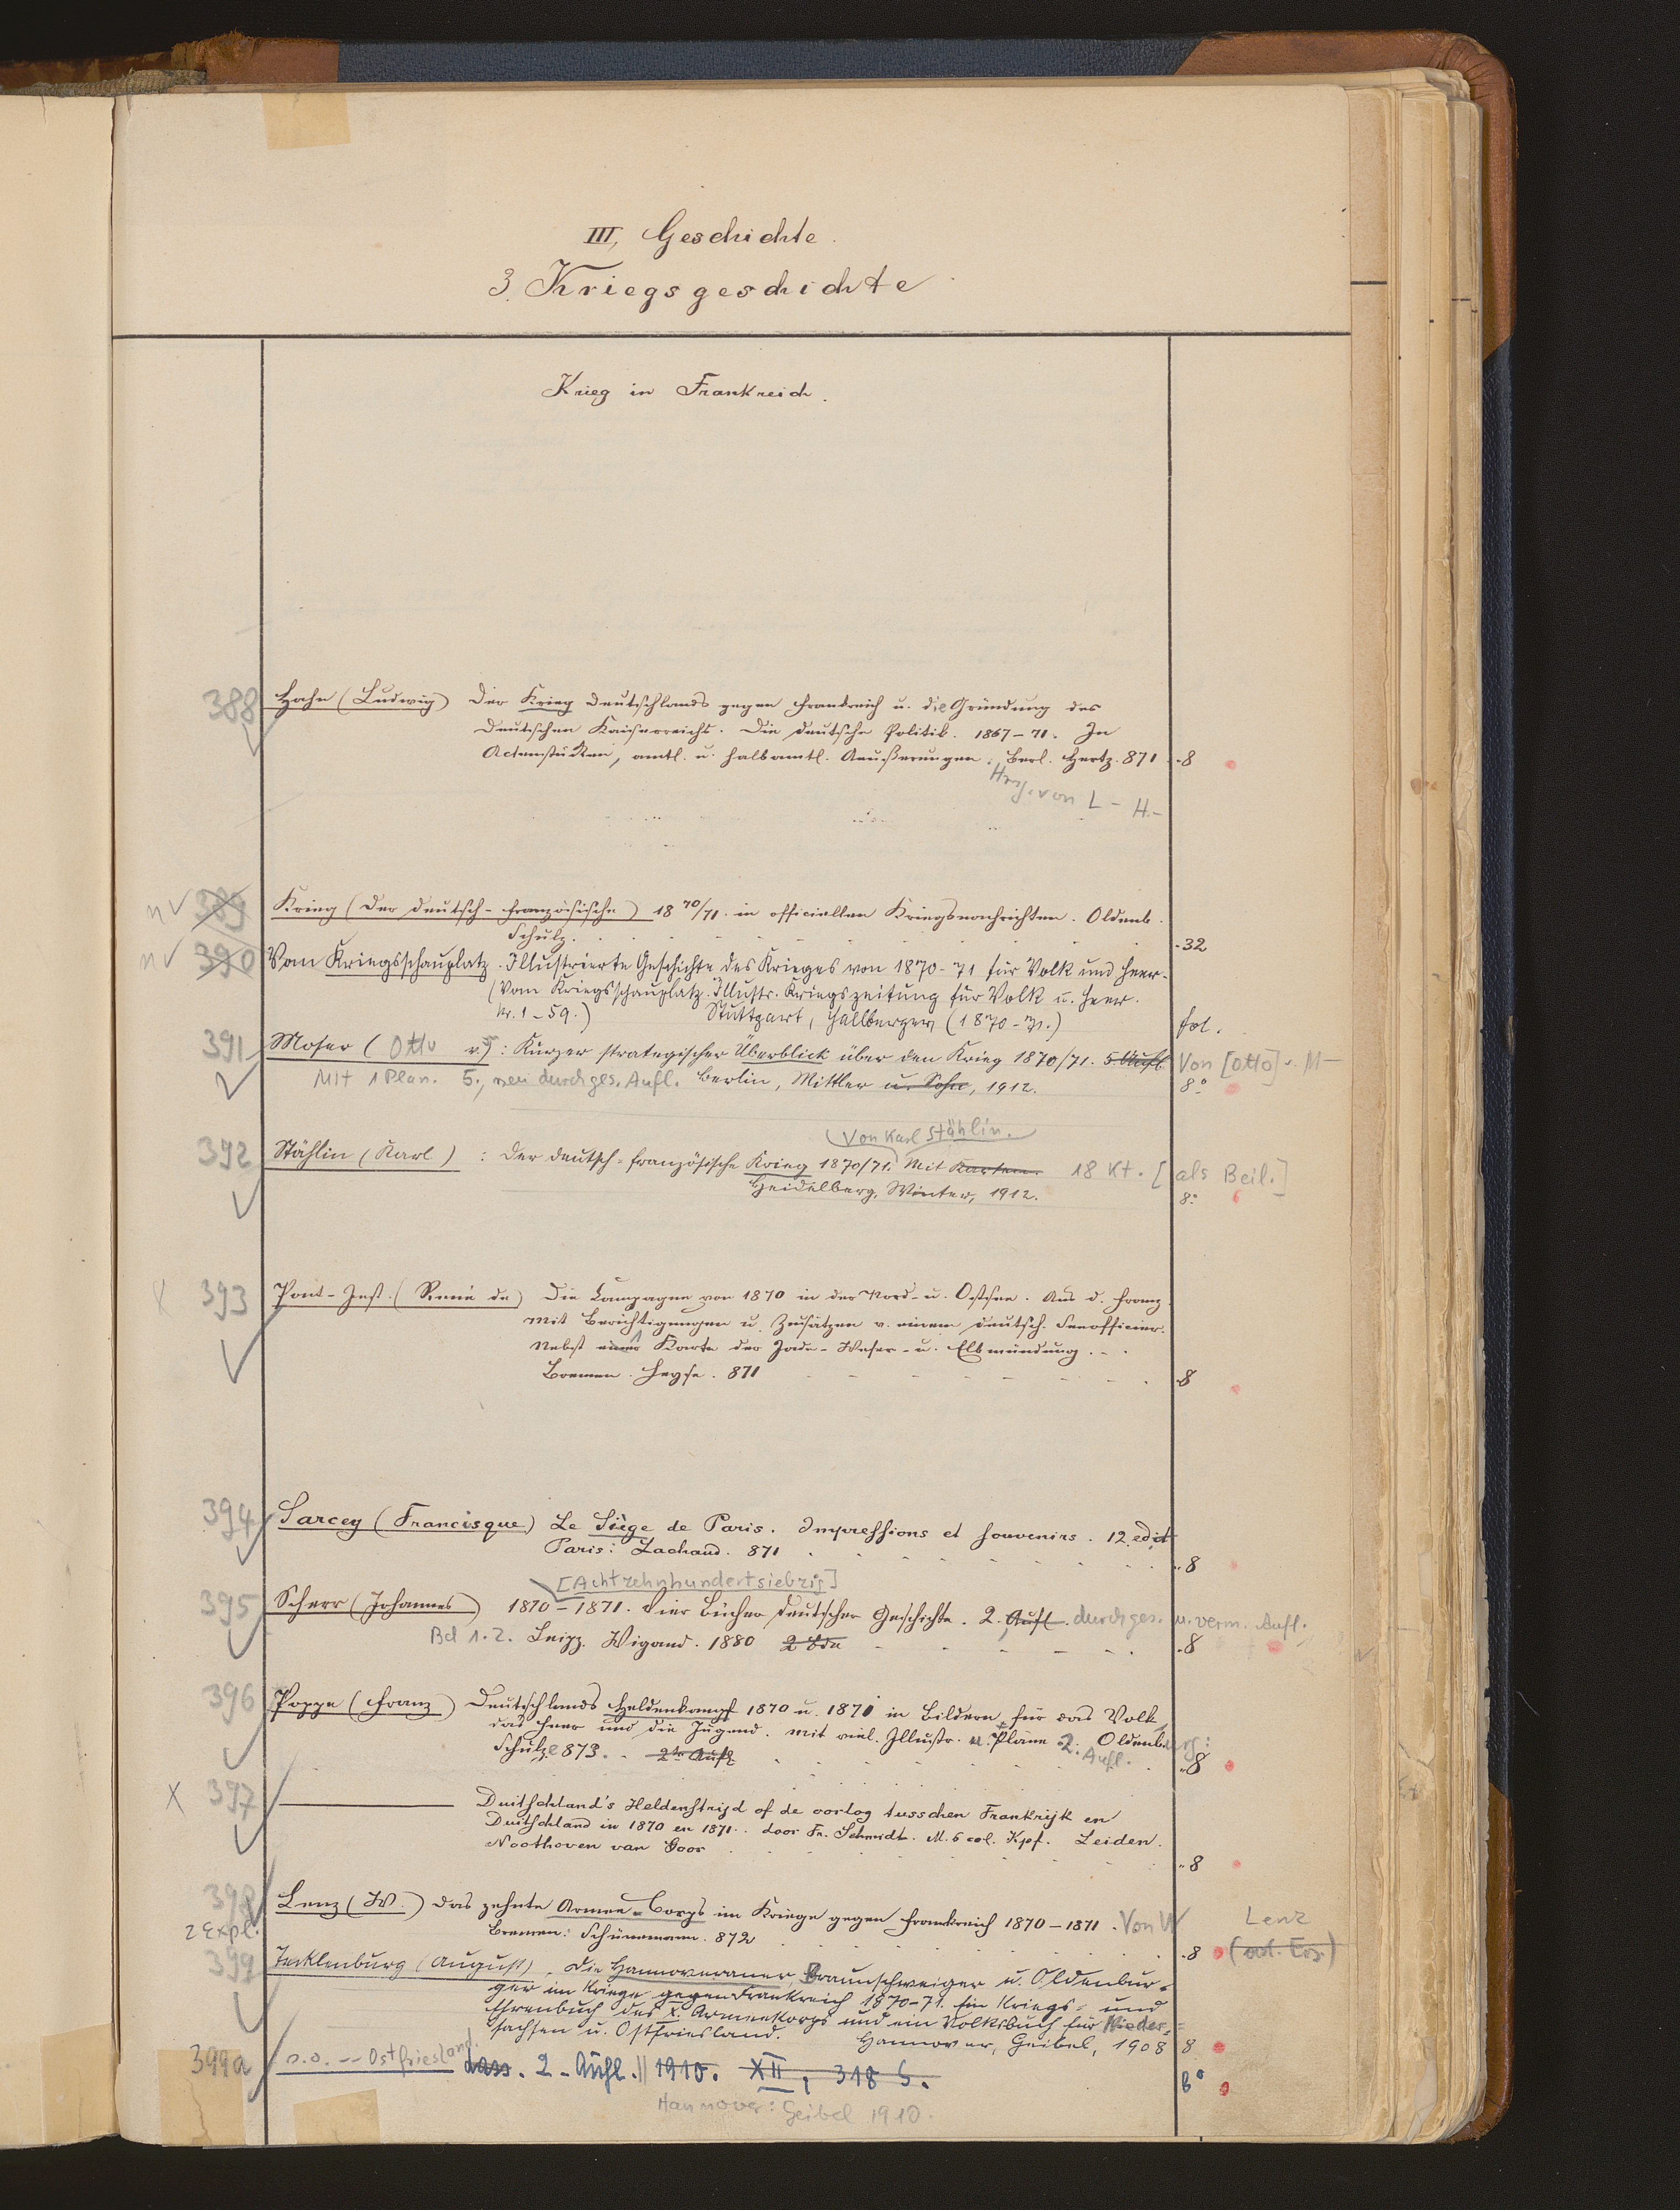 III, Geschichte.
3. Kriegsgeschichte
Krieg in Frankreich.
388 Hahn (Ludwig) Der Krieg Deutschlands gegen Frankreich u. die Gründung des
Deutschen Kaiserreichs. Die deutsche Politik. 1867-71. In
Actenstücken, amtl. u. halbamtl. Aeußerungen. Berl. Hertz. 871 8
Hrsg. von L- H.-
n 389 Krieg (Der deutsch-französische) 18 70/71. in officiellen Kriegsnachrichten. Oldenb.
Schulz. 32
n 390 Vom Kriegsschauplatz. Illustrierte Geschichte des Krieges von 1870-71 für Volk und Heer.
(Vom Kriegsschauplatz. Illustr. Kriegszeitung für Volk u. Heer.
Nr. 1-59.) Stuttgart, Hallberger (1870-71.) fol.
391 Moser (Otto v.): Kurzer strategischer Überblick über den Krieg 1870/71. 5. Aufl. Von [Otto] v. M-
Mit 1 Plan. 5., neu durchges. Aufl. Berlin, Mittler u. Sohn, 1912. 8°
(Von Karl Stählin.
392 Stählin (Karl) : Der deutsch-französische Krieg 1870/71. Mit Karten. 18 Kt. [als Beil.]
Heidelberg, Winter, 1912. 8°
X 393 Pont-Jest. (René de) Die Campagne von 1870 in der Nord- u. Ostsee. Aus d. Franz.
Mit Berichtigungen u. Zusätzen v. einem deutsch. Seeofficier.
Nebst einer Karte der Jade-Weser- u. Elbmündung.
Bremen. Heyse. 871 8
394 Sarcey (Francisque) Le Siège de Paris. Impressions et souvenirs. 12. edit
Paris: Lachaud. 871 8
[Achtzehnhundertsiebzig]
395 Scherr (Johannes) 1870-1871. Vier Bücher deutscher Geschichte. 2. Aufl. durchges. u. verm. Aufl.
Bd 1.2. Leipz. Wigand. 1880 2 Bde 8
396 Poppe (Franz) Deutschlands Heldenkampf 1870 u. 1871 in Bildern für das Volk,
das Heer und die Jugend. Mit viel. Illustr. u. Pläne. 2. Aufl. Oldenburg:
Schulze 873. 2te Aufl. 8
X 397 ——— Duitschland's Heldenstrijd of de oorlog tusschen Frankrijk en
Duitschland in 1870 en 1871. door Fr. Schmidt. M. 6 col. Kpf. Leiden.
Noothoven van Goor 8
398 Lenz (W.) Das zehnte Armee-Corps im Kriege gegen Frankreich 1870-1871. Von W Lenz
2 Expl. Bremen: Schünemann. 872 8
399 Tecklenburg (August). Die Hannoveraner, Braunschweiger u. Oldenbur-
ger im Kriege gegen Frankreich 1870-71. Ein Kriegs- und
Ehrenbuch des X. Armeekorps und ein Volksbuch für Nieder-
sachsen u. Ostfriesland. Hannover, Geibel, 1908 8
399a -- Ostfriesland. dass. 2. Aufl. 1910. XII, 318 S. 8°
Hannover: Geibel 1910.